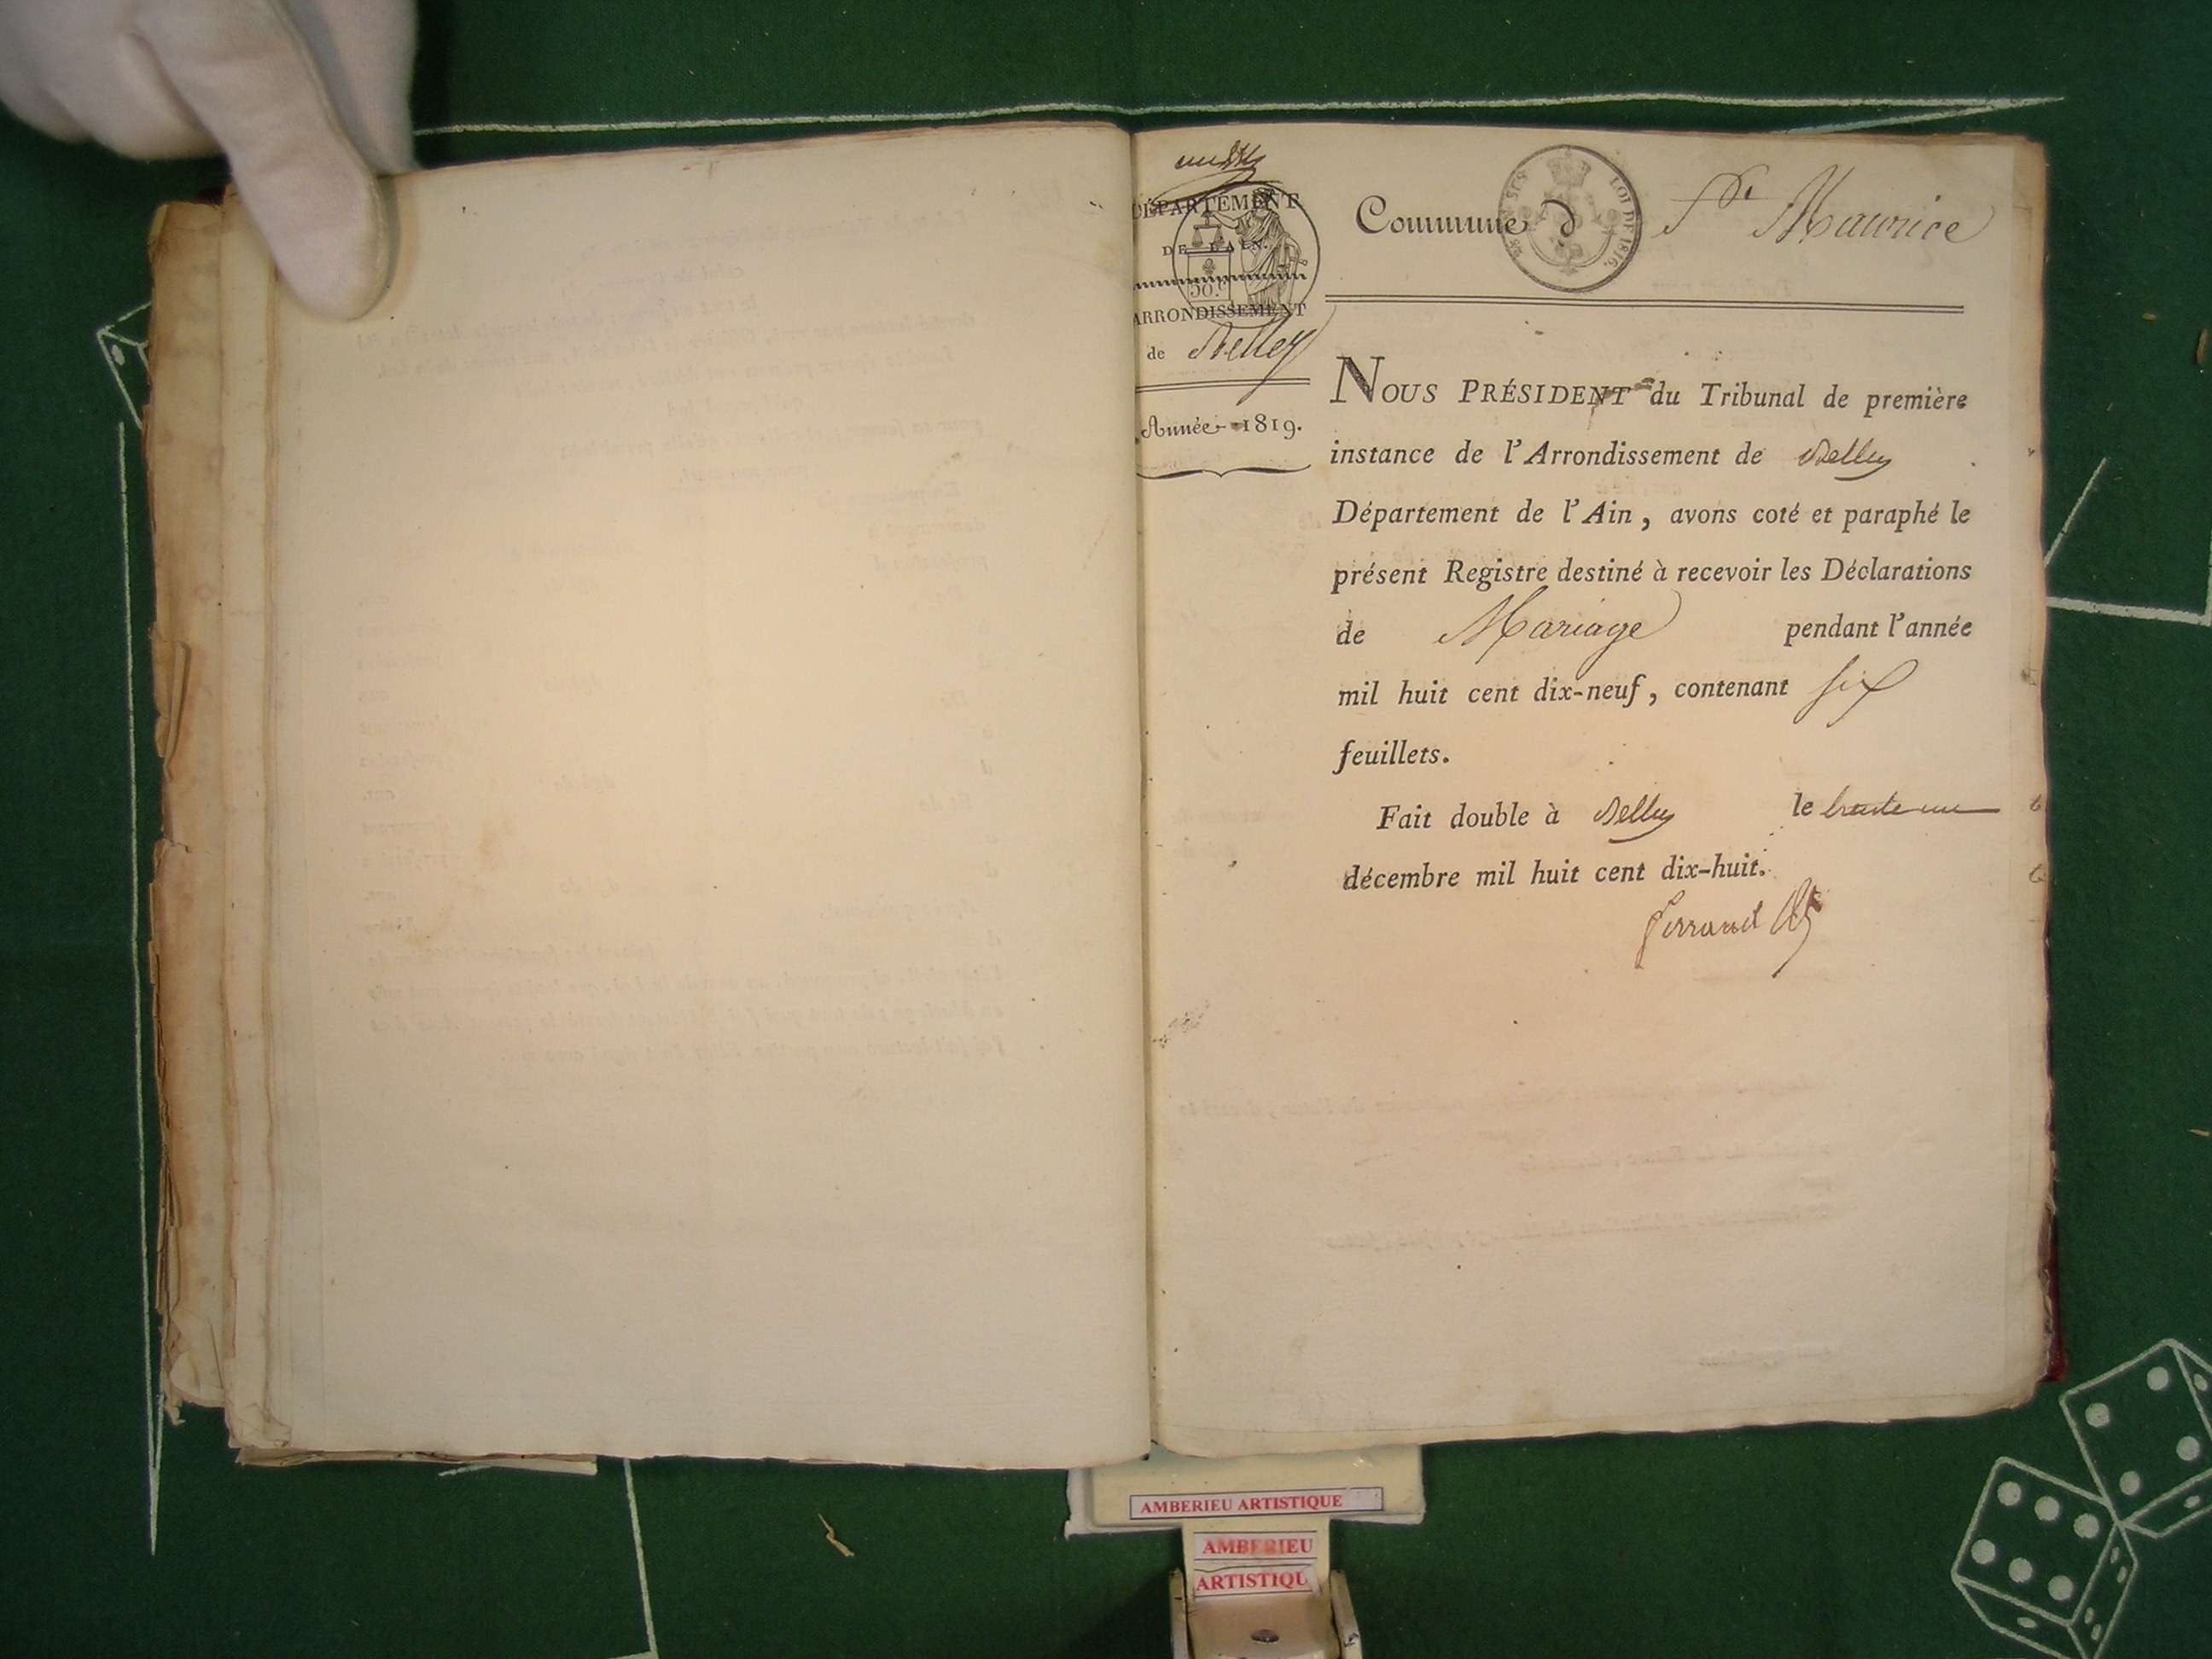 DÉPARTEMENT
DE L'AIN.
ARRONDISSEMENT
de Belley
Année 1819.
Commune d St Maurice
LOI DE 1816.
NOUS PRÉSIDENT du Tribunal de première
instance de l'Arrondissement de Belley
Département de l'Ain, avons coté et paraphé le
présent Registre destiné à recevoir les Déclarations
de Mariage pendant l'année
mil huit cent dix-neuf, contenant six
feuillets.
Fait double à Belley le trente un
décembre mil huit cent dix-huit.
AMBERIEU ARTISTIQUE
AMBERIEU
ARTISTIQU